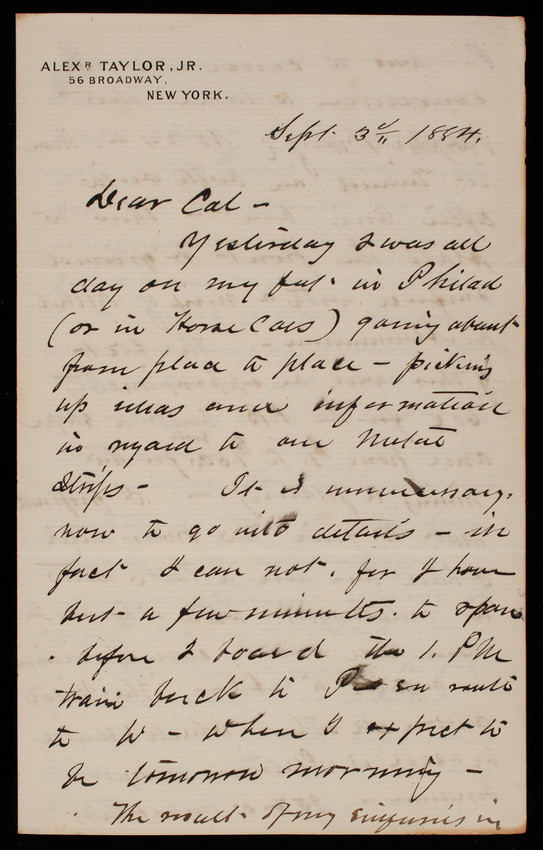 ALEXR TAYLOR, JR.
56 BROADWAY,
NEW YORK.
Sept. 3d 1884.
Dear Cal -
Yesterday I was all
day on my feet in Philad
(or in Horse Cars) going about
from place to place - picking
up ideas and information
in regard to our Metal
Strips - It is unnecessary
now to go into details - in
fact I can not. for I have
but a few minutes to spare
before I board the 1. PM
train back to P en route
to W - where I expect to
be tomorrow morning -
The result of my enquiries in